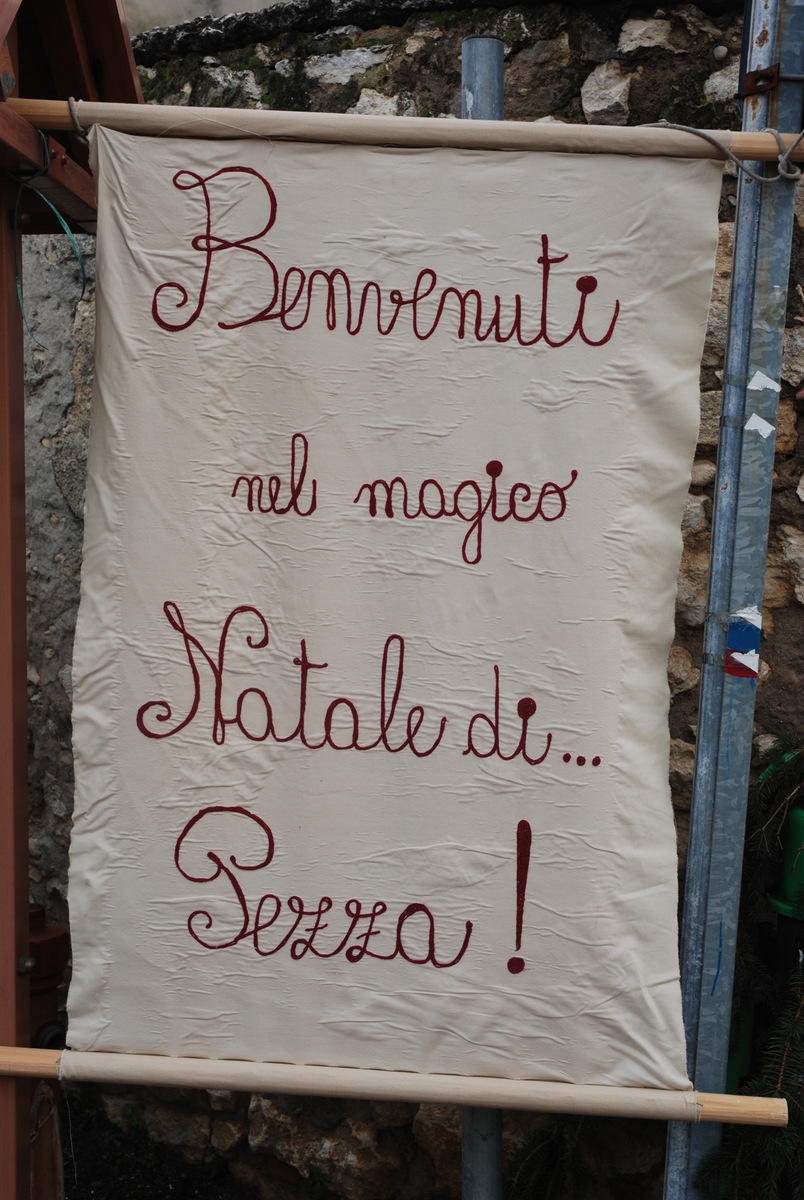 Benvenuti
nel magico
Natale di...
Pezza!